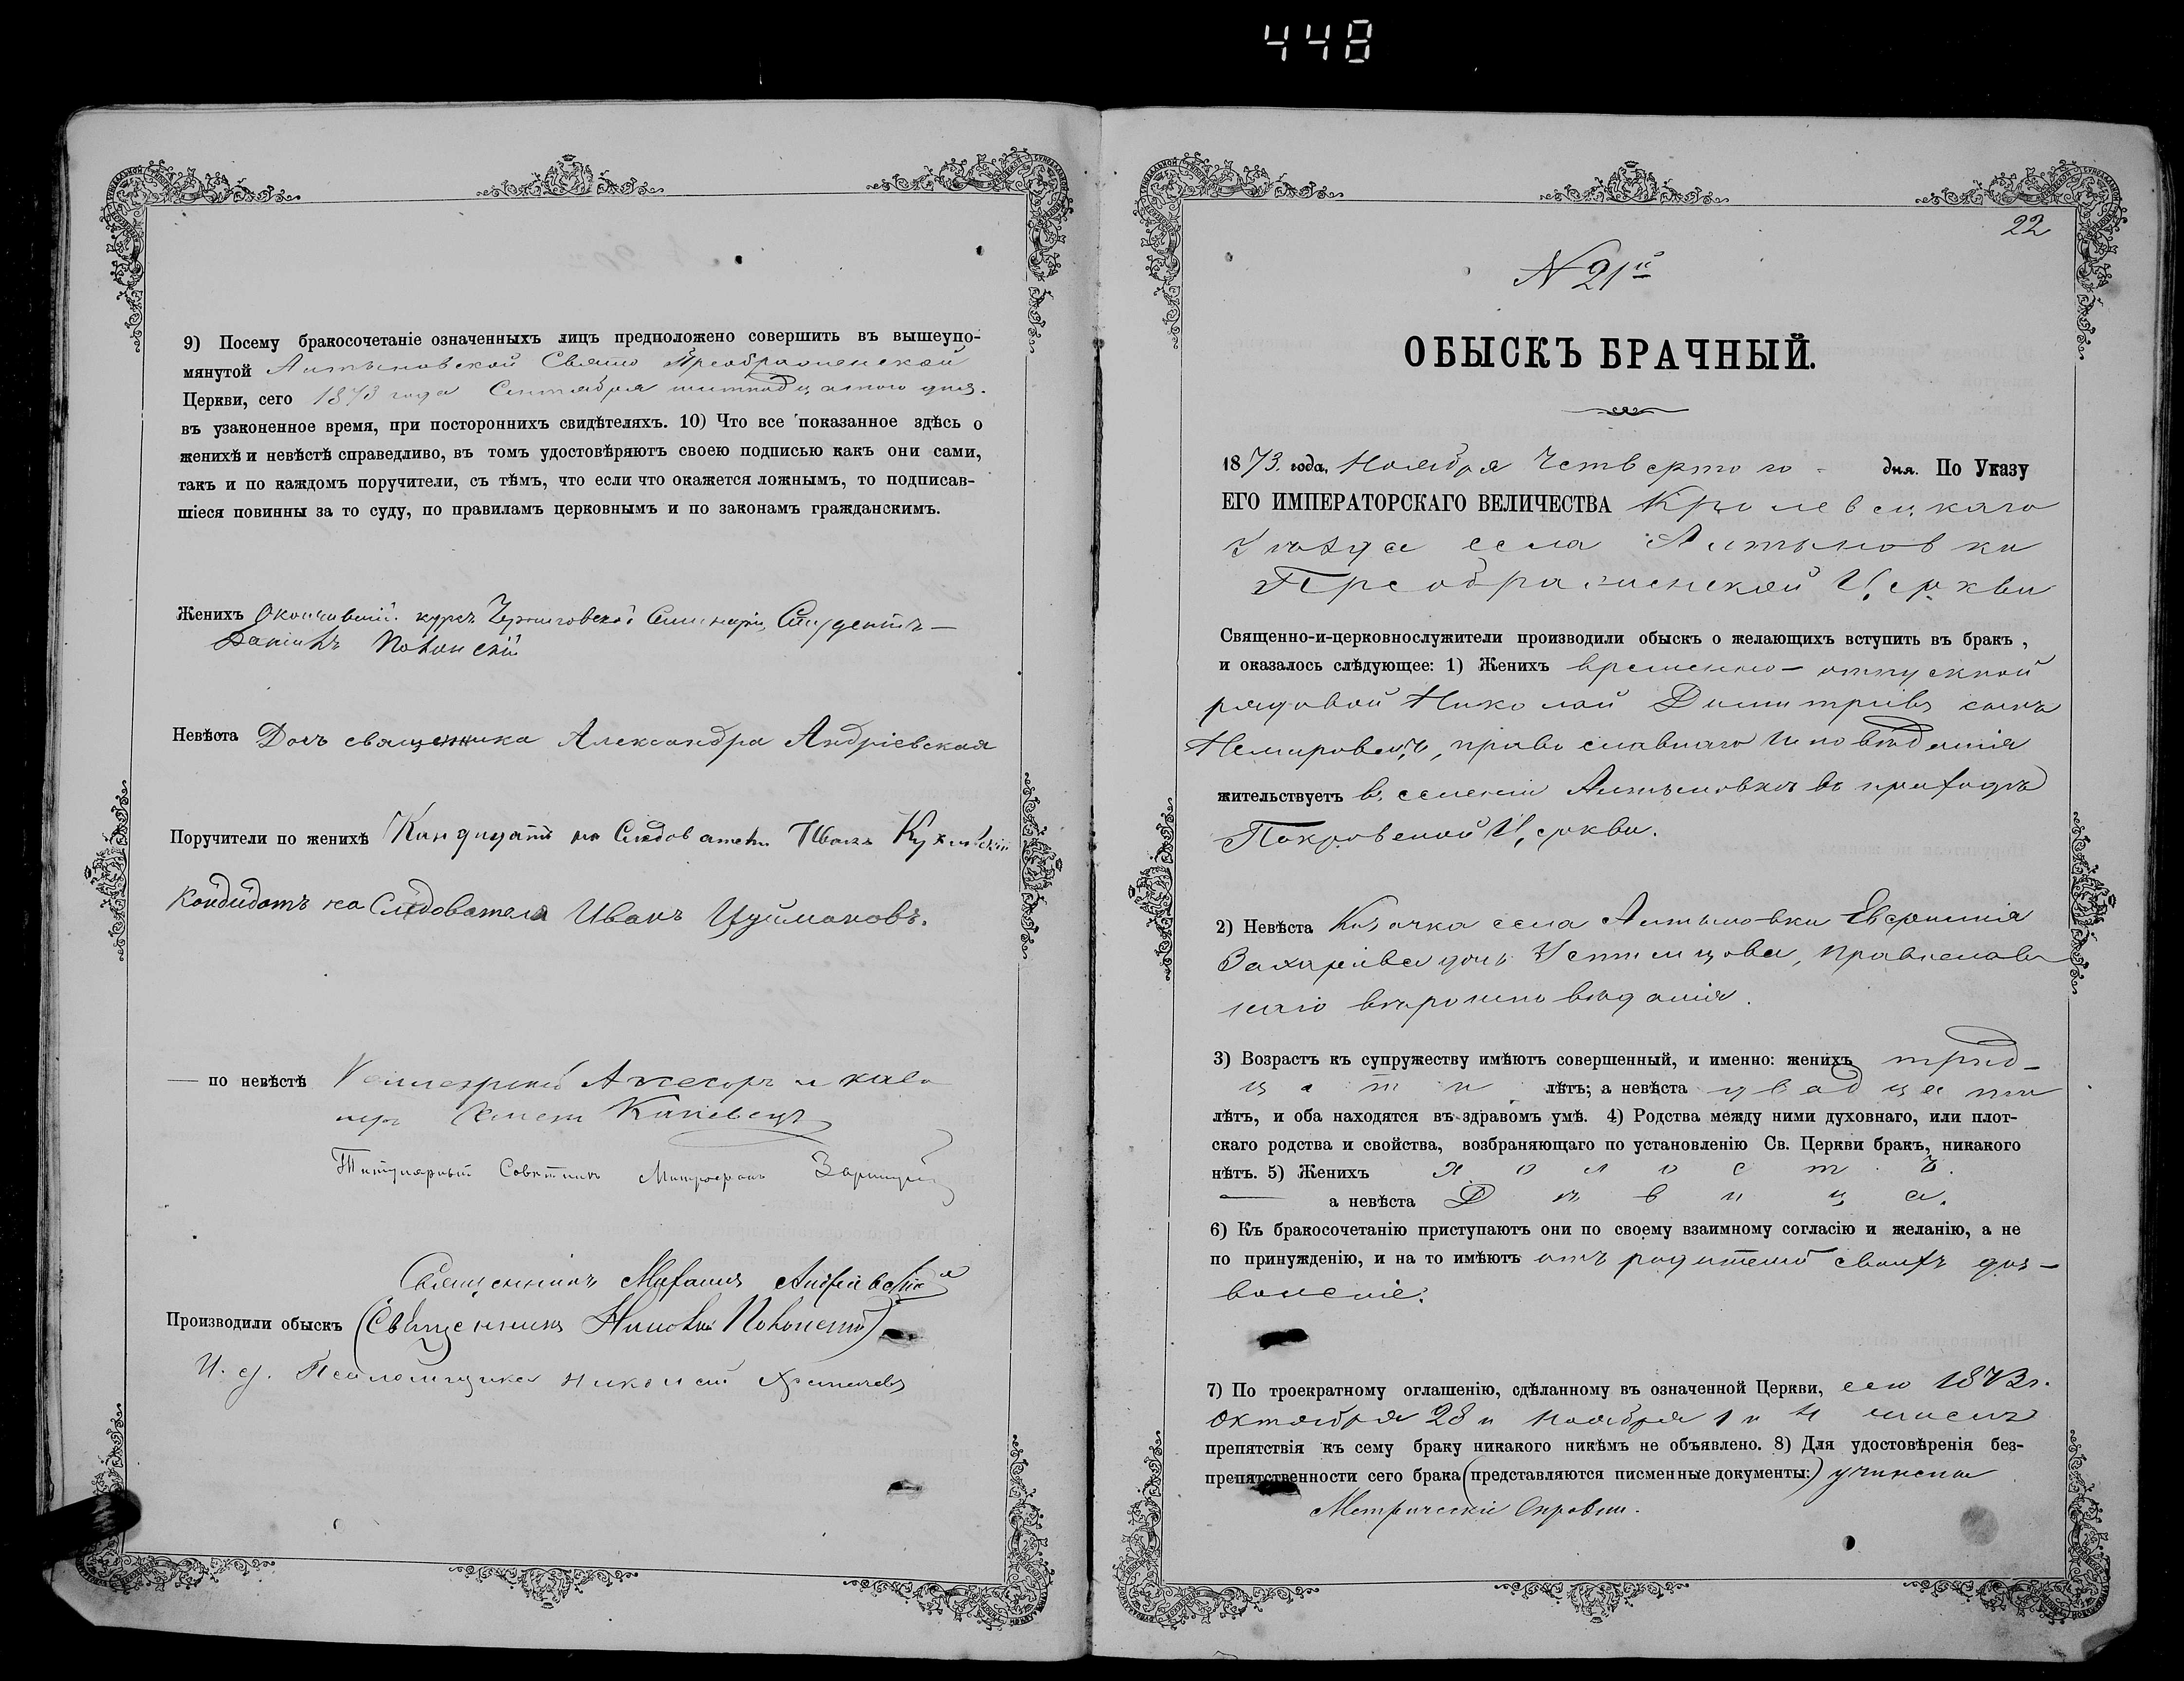 448
9) Посему бракосочетаніе означенныхъ лицъ предположено совершить въ вышеупо-
мянутой Алтыновской Свято Преображенской
Церкви, сего 1873 года Сентября дня.
въ узаконенное время, при постороннихъ свидѣтеляхъ. 10) Что все показанное здѣсь о
женихѣ и невѣстѣ справедливо, въ томъ удостовѣряютъ своею подписью какъ они сами,
такъ и по каждомъ поручители, съ тѣмъ, что если что окажется ложнымъ, то подписав-
шіеся повинны за то суду, по правиламъ церковнымъ и по законамъ гражданскимъ.
Женихъ Окончившій курсъ Черниговской Семинаріи, Студентъ —
Даніилъ
Невѣста Дочь священника Александра Андріевская
Поручители по женихѣ Кандидатъ на Слѣдователя Иванъ
Кандидатъ на Слѣдователя Иванъ
— по невѣстѣ Коллежскій Ассесоръ и кава
леръ
Титулярный Совѣтникъ Митрофанъ
Священникъ Михаилъ Андріевскій
Производили обыскъ (Священникъ
И. д. Псаломщика Николай
22
N 21й
ОБЫСКЪ БРАЧНЫЙ.
1873. года, Ноября Четвертого - дня. По Указу
ЕГО ИМПЕРАТОРСКАГО ВЕЛИЧЕСТВА Кролевецкаго
Уѣзда села Алтыновки
Преображенской Церкви
Священно-и-церковнослужители производили обыскъ о желающихъ вступить въ бракъ,
и оказалось слѣдующее: 1) Женихъ временно-отпускной
рядовой Николай Димитріевъ сынъ
Немировецъ, православнаго исповѣданія
жительствуетъ въ селеніи Алтыновкѣ въ приходѣ
Покровской Церкви.
2) Невѣста Козачка села Алтыновки Евфимія
Захаріева дочь Устимцова, православ
наго вѣроисповѣданія.
3) Возрастъ къ супружеству имѣютъ совершенный, и именно: женихъ трид-
цати лѣтъ; а невѣста двадцати
лѣтъ, и оба находятся въ здравомъ умѣ. 4) Родства между ними духовнаго, или плот-
скаго родства и свойства, возбраняющаго по установленію Св. Церкви бракъ, никакого
нѣтъ. 5) Женихъ холостъ.
— а невѣста Дѣвица.
6) Къ бракосочетанію приступаютъ они по своему взаимному согласію и желанію, а не
по принужденію, и на то имѣютъ отъ родителей своихъ доз-
воленіе.
7) По троекратному оглашенію, сдѣланному въ означенной Церкви, сего 1873 г.
Октября 28 и Ноября 1 и 4 чиселъ
препятствія къ сему браку никакого никѣмъ не объявлено. 8) Для удостовѣренія без-
препятственности сего брака (представляются писменные документы:) учинены
Метрическіе Справки.